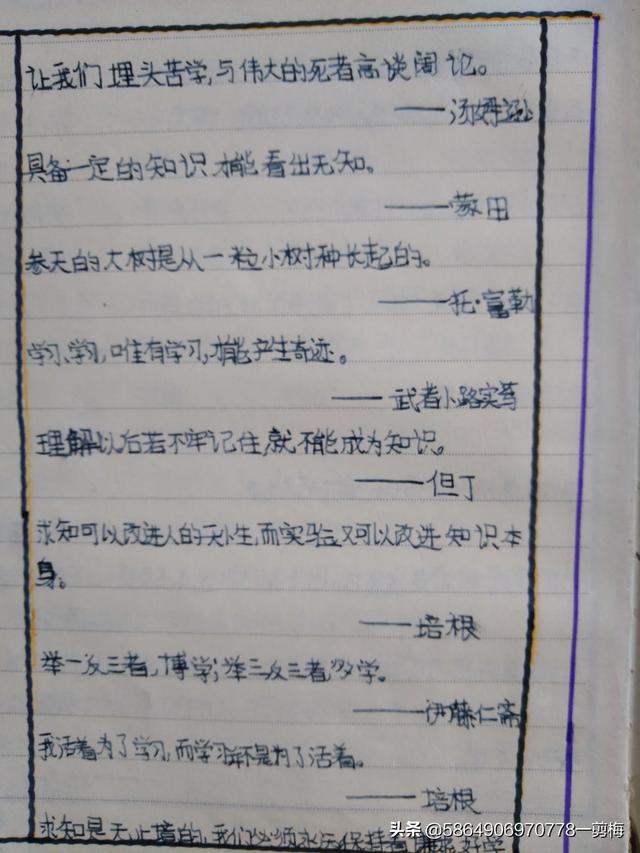 让我们埋头苦学,与伟大的死者高谈阔论。
——汤姆逊
具备一定的知识,才能看出无知。
——蒙田
参天的大树是从一粒小树种长起的。
——托·富勒
学习、学习,唯有学习,才能产生奇迹。
——武者小路实笃
理解以后若不牢记住,就不能成为知识。
——但丁
求知可以改进人的天性,而实验又可以改进知识本
身。
——培根
举一反三者,博学;举三反三者多学。
——伊藤仁斋
我活着为了学习,而学习并不是为了活着。
——培根
求知是无止境的,我们必须永远保持着
头条 @5864906970778一剪梅